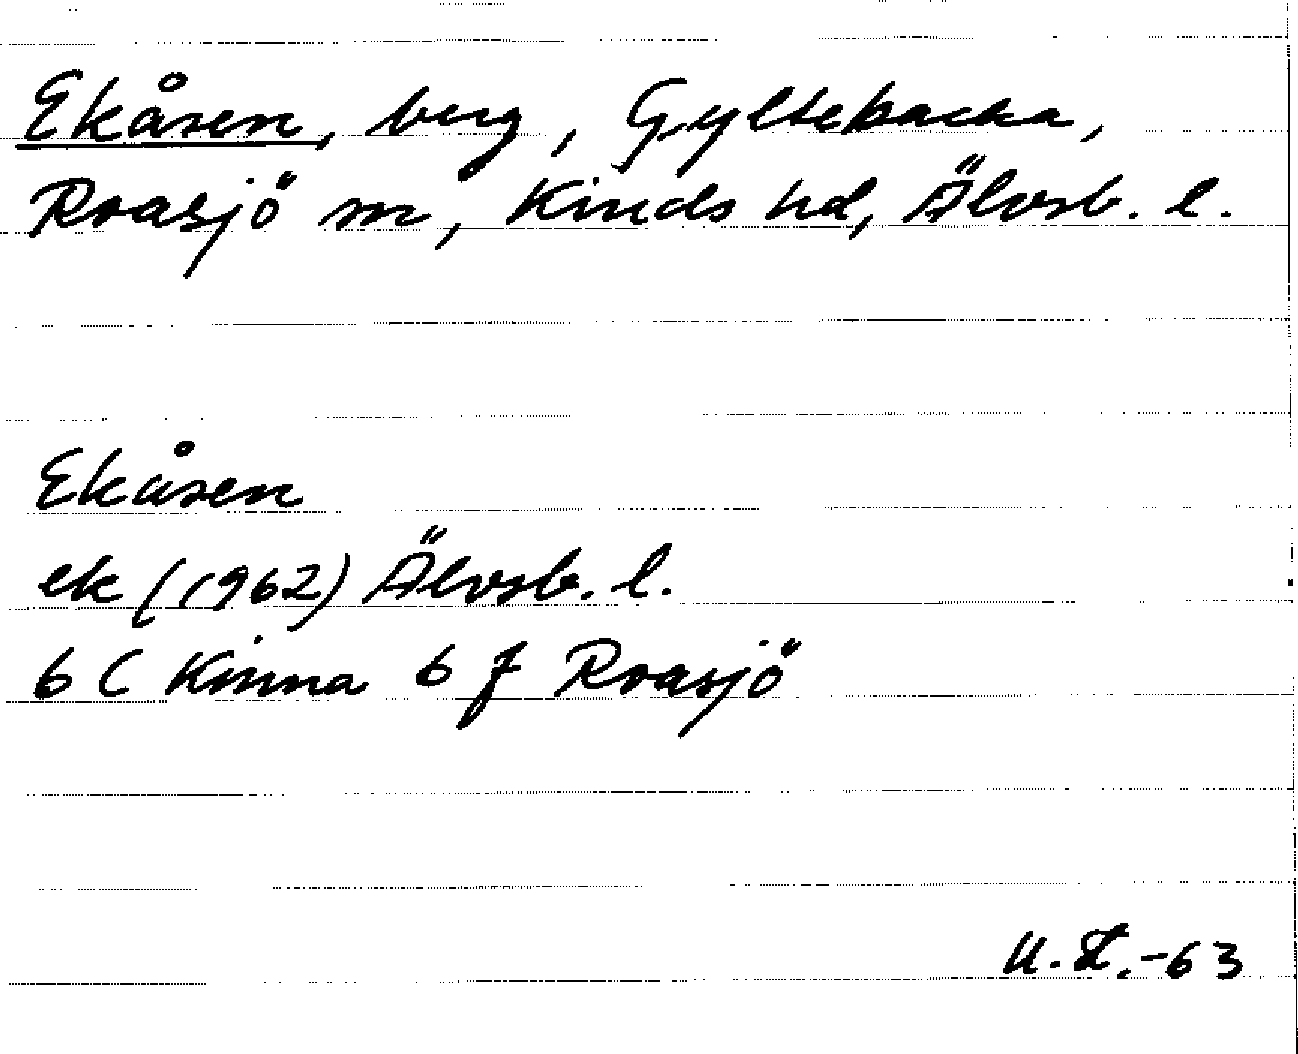 Ekåsen, berg, Gyltebacka,
Roasjö sn, Kinds hd, Älvsb. l.
Ekåsen
ek (1962) Älvsb. l.
6 C Kinna 6 f Roasjö
U.St.-63